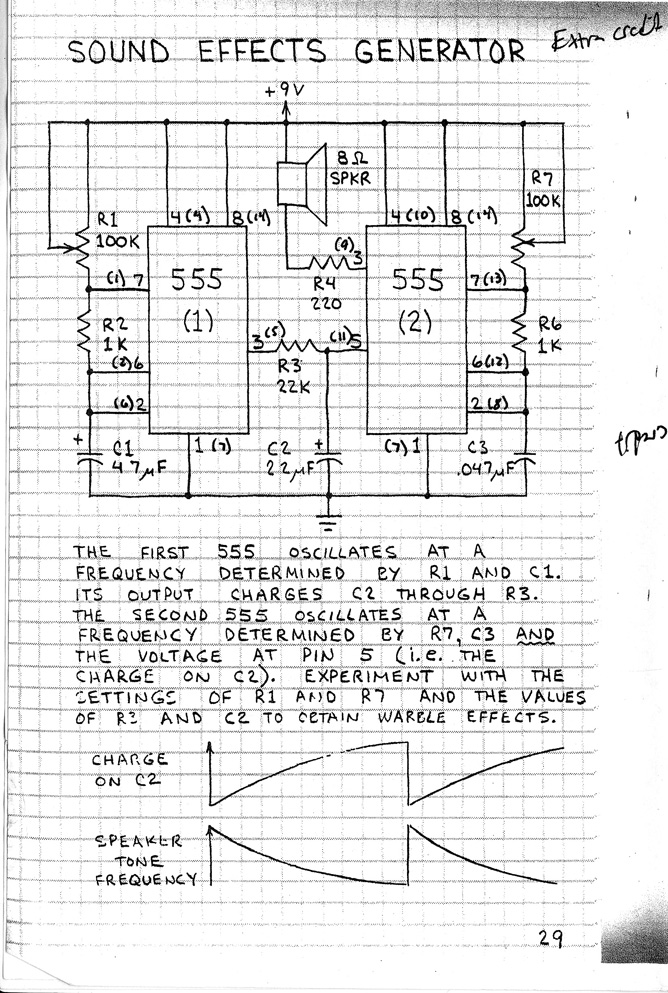 SOUND EFFECTS GENERATOR
Extra credit
+9V
8Ω
SPKR
R7
100K
R1
100K
4(4)
8(14)
4(10)
8(14)
(1) 7
555
(1)
(9)
3
R4
220
555
(2)
7(13)
R2
1K
(2)6
3(5)
R3
22K
(11)5
R6
1K
6(12)
(6)2
2(8)
+
C1
47µF
1 (7)
C2
22µF
+
(7) 1
C3
.047µF
+
credit
THE FIRST 555 OSCILLATES AT A
FREQUENCY DETERMINED BY R1 AND C1.
ITS OUTPUT CHARGES C2 THROUGH R3.
THE SECOND 555 OSCILLATES AT A
FREQUENCY DETERMINED BY R7, C3 AND
THE VOLTAGE AT PIN 5 (i.e. THE
CHARGE ON C2). EXPERIMENT WITH THE
SETTINGS OF R1 AND R7 AND THE VALUES
OF R3 AND C2 TO OBTAIN WARBLE EFFECTS.
CHARGE
ON C2
SPEAKER
TONE
FREQUENCY
29